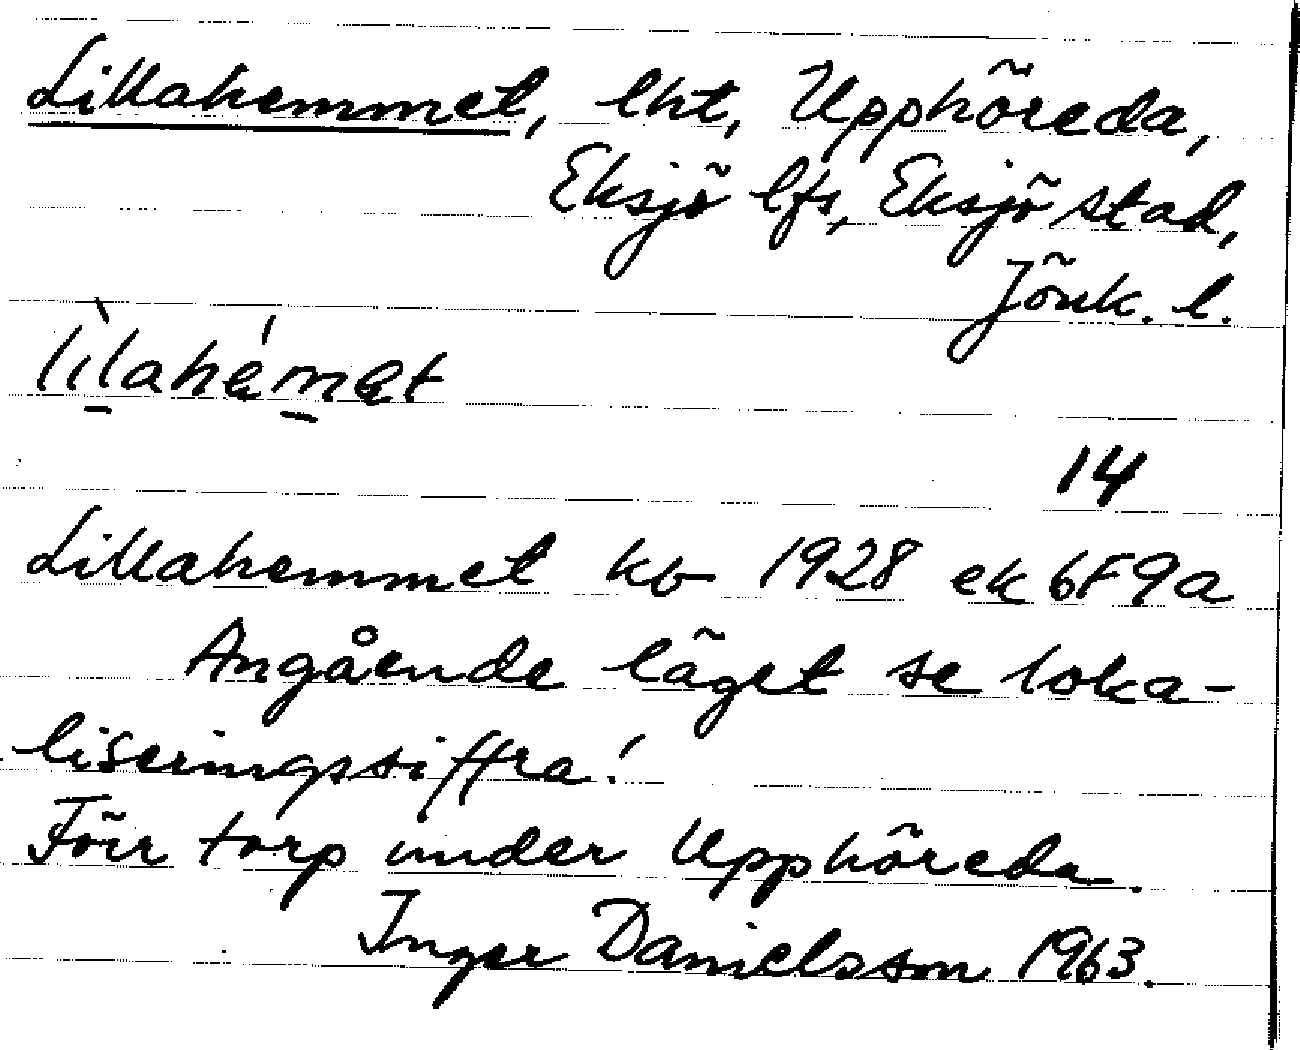 Lillahemmet, lht, Upphöreda,
Eksjö lfs, Eksjö stad,
Jönk. l.
lìl̠ahém̠et
14
Lillahemmet kb 1928 ek 6F9a
Angående läget se loka-
liseringssiffra!
Förr torp under Upphöreda.
Inger Danielsson 1963.